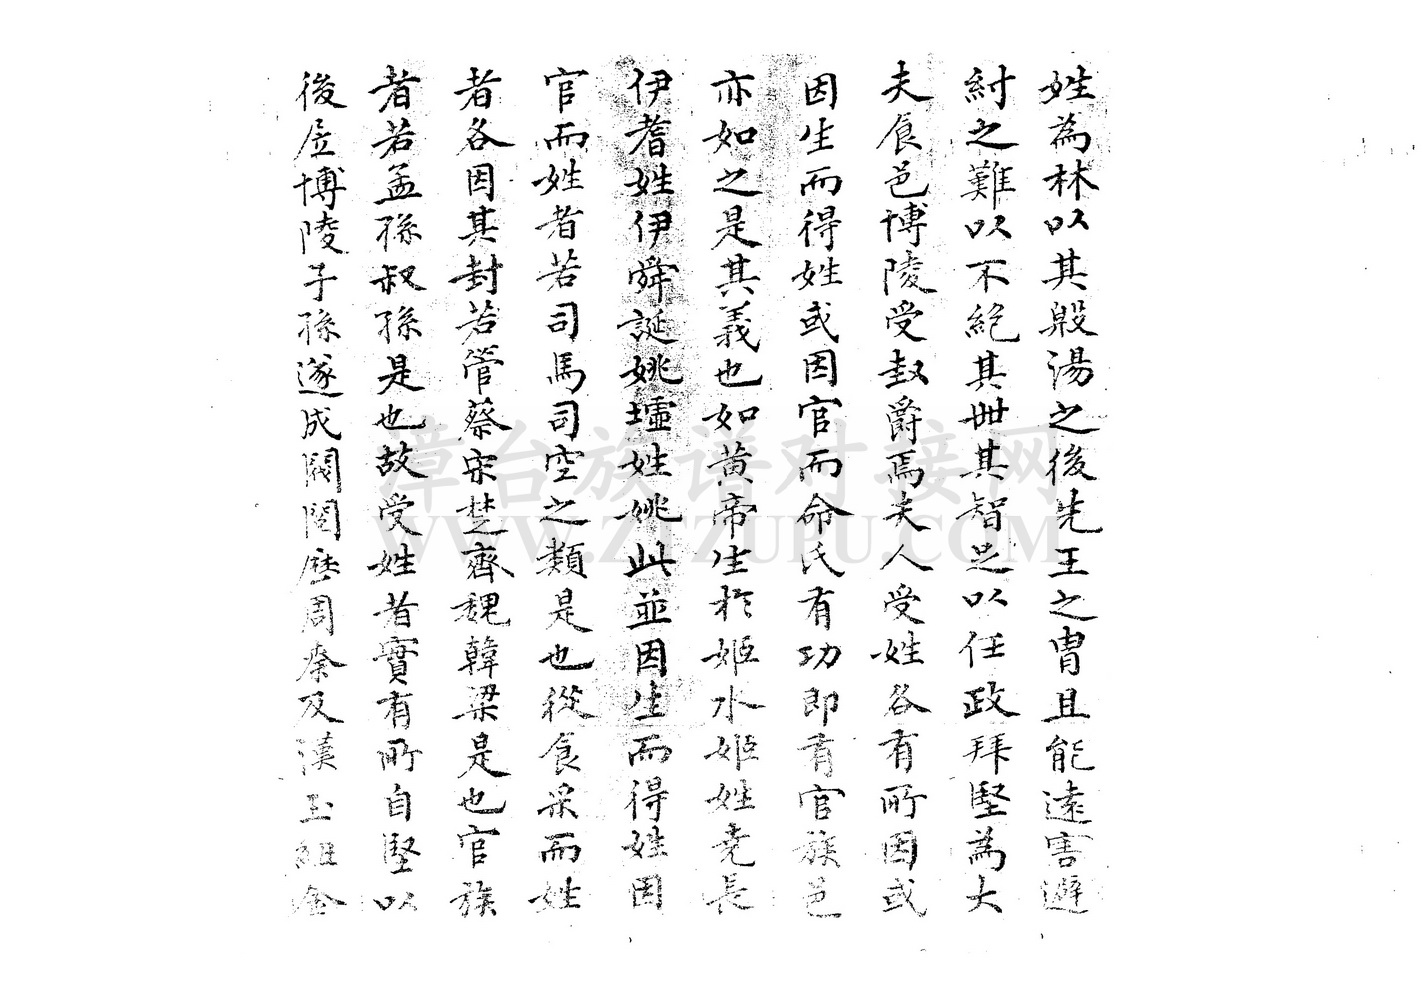 姓為林以其殷湯之後先王之冑且能遠害避
紂之難以不絕其世其智足以任政拜堅為大
夫食邑博陵受封爵焉夫人受姓各有所因或
因生而得姓或因官而命氏有功即有官族邑
亦如之是其義也如黃帝生於姬水姬姓堯長
伊耆姓伊舜誕姚墟姓姚此並因生而得姓因
官而姓者若司馬司空之類是也從食采而姓
者各因其封若管蔡宋楚齊魏韓梁是也官族
者若孟孫叔孫是也故受姓者實有所自堅以
後居博陵子孫遂成閥閱歷周秦及漢玉組金
漳台族谱对接网
WWW.ZTZUPU.COM